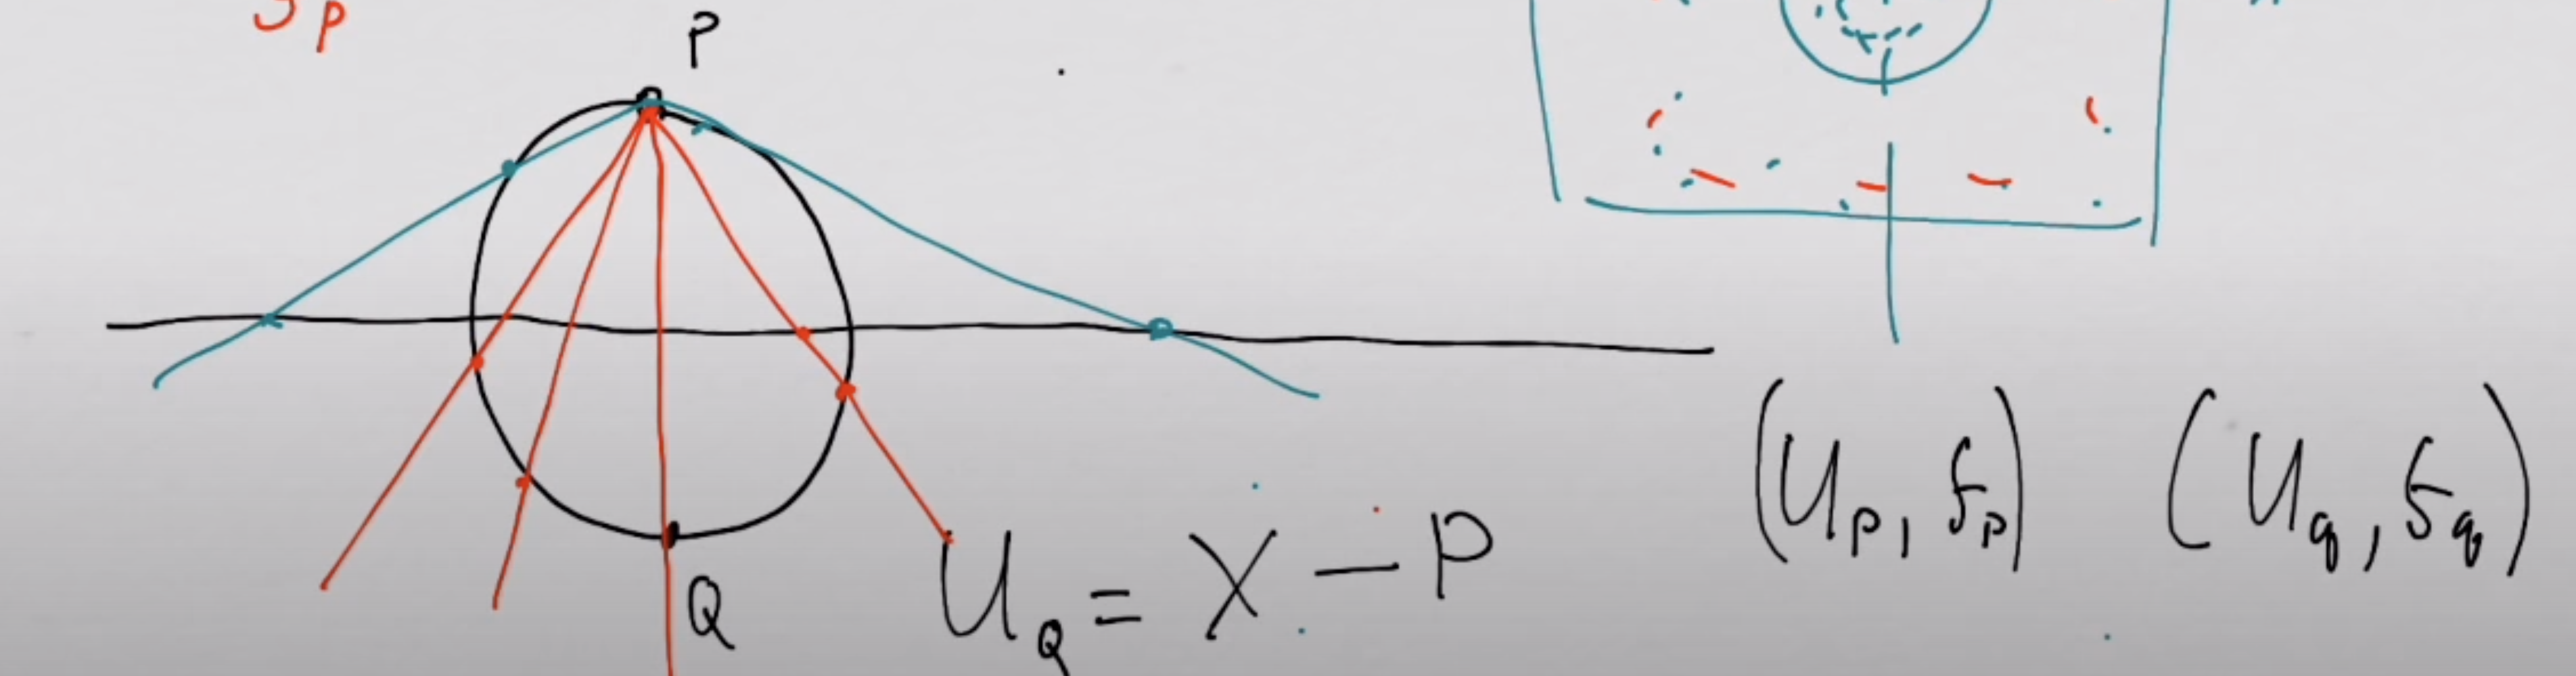 P
Q
U_Q = X - P
(U_p, f_p) (U_q, f_q)